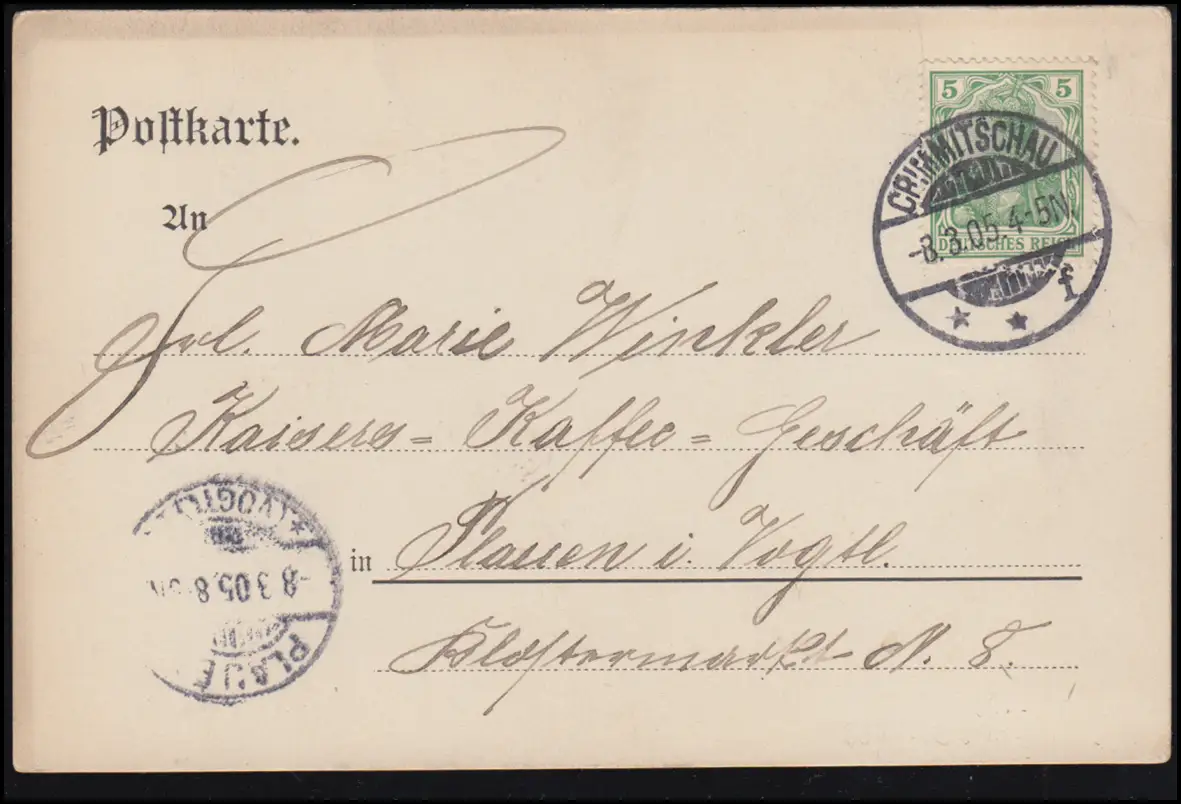 Postkarte.
An
5 5
DEUTSCHES REICH
CRIMMITSCHAU
-8.3.05.4-5N.
* * f
Frl. Marie Winkler
Kaisers-Kaffee-Geschäft
in Plauen i. Vogtl.
Klostermarkt N. 8.
PLAUE
-8.3.05.8
*(VOGTL